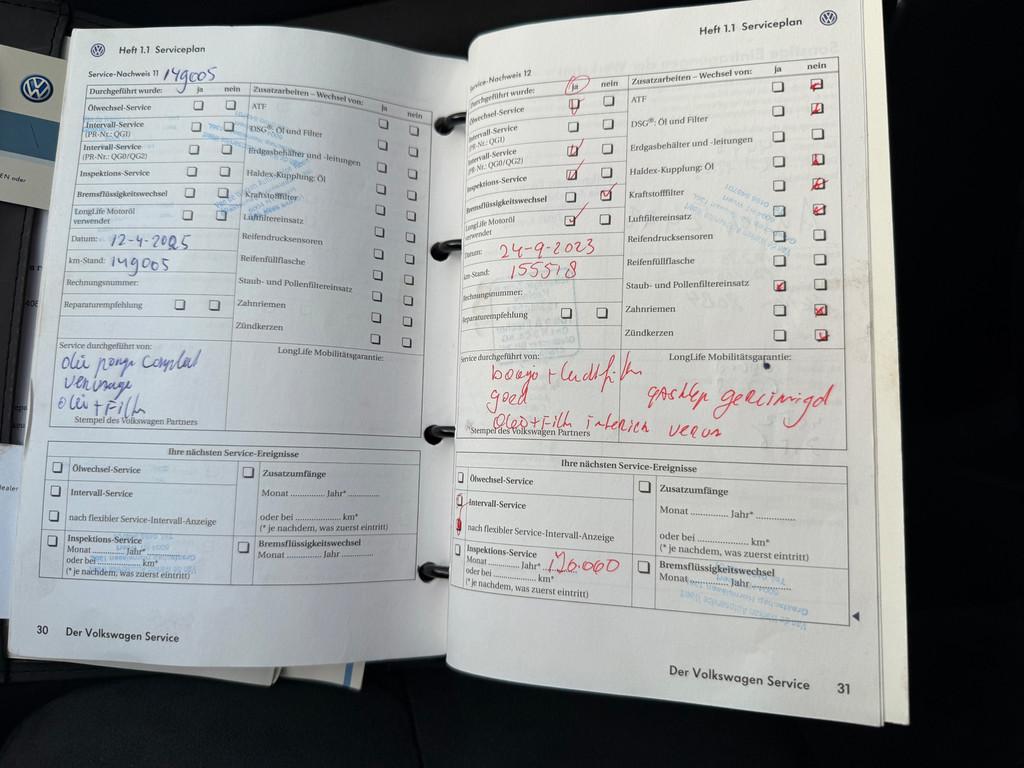 Heft 1.1 Serviceplan
Service-Nachweis 11 149005
Durchgeführt wurde: ja nein
Ölwechsel-Service
Intervall-Service
(PR-Nr.: QG1)
Intervall-Service
(PR-Nr.: QG0/QG2)
Inspektions-Service
Bremsflüssigkeitswechsel
LongLife Motoröl
verwendet
Datum: 12-4-2025
km-Stand: 149005
Rechnungsnummer:
Reparaturempfehlung
Zusatzarbeiten – Wechsel von: ja nein
ATF
DSG®: Öl und Filter
Erdgasbehälter und -leitungen
Haldex-Kupplung: Öl
Kraftstofffilter
Luftfiltereinsatz
Reifendrucksensoren
Reifenfüllflasche
Staub- und Pollenfiltereinsatz
Zahnriemen
Zündkerzen
Service durchgeführt von:
LongLife Mobilitätsgarantie:
Stempel des Volkswagen Partners
Ihre nächsten Service-Ereignisse
Ölwechsel-Service
Intervall-Service
nach flexibler Service-Intervall-Anzeige
Inspektions-Service
Monat ............ Jahr* ............
oder bei .................... km*
(* je nachdem, was zuerst eintritt)
Zusatzumfänge
Monat ............ Jahr* ............
oder bei .................... km*
(* je nachdem, was zuerst eintritt)
Bremsflüssigkeitswechsel
Monat ............ Jahr ............
30 Der Volkswagen Service
Heft 1.1 Serviceplan
Service-Nachweis 12
Durchgeführt wurde: ja nein
Ölwechsel-Service
Intervall-Service
(PR-Nr.: QG1)
Intervall-Service
(PR-Nr.: QG0/QG2)
Inspektions-Service
Bremsflüssigkeitswechsel
LongLife Motoröl
verwendet
Datum: 24-9-2023
km-Stand: 155518
Rechnungsnummer:
Reparaturempfehlung
Zusatzarbeiten – Wechsel von: ja nein
ATF
DSG®: Öl und Filter
Erdgasbehälter und -leitungen
Haldex-Kupplung: Öl
Kraftstofffilter
Luftfiltereinsatz
Reifendrucksensoren
Reifenfüllflasche
Staub- und Pollenfiltereinsatz
Zahnriemen
Zündkerzen
Service durchgeführt von:
goed
LongLife Mobilitätsgarantie:
gereinigd
Stempel des Volkswagen Partners
Ihre nächsten Service-Ereignisse
Ölwechsel-Service
Intervall-Service
nach flexibler Service-Intervall-Anzeige
Inspektions-Service
Monat ............ Jahr* 176.000
oder bei .................... km*
(* je nachdem, was zuerst eintritt)
Zusatzumfänge
Monat ............ Jahr* ............
oder bei .................... km*
(* je nachdem, was zuerst eintritt)
Bremsflüssigkeitswechsel
Monat ............ Jahr ............
Der Volkswagen Service 31